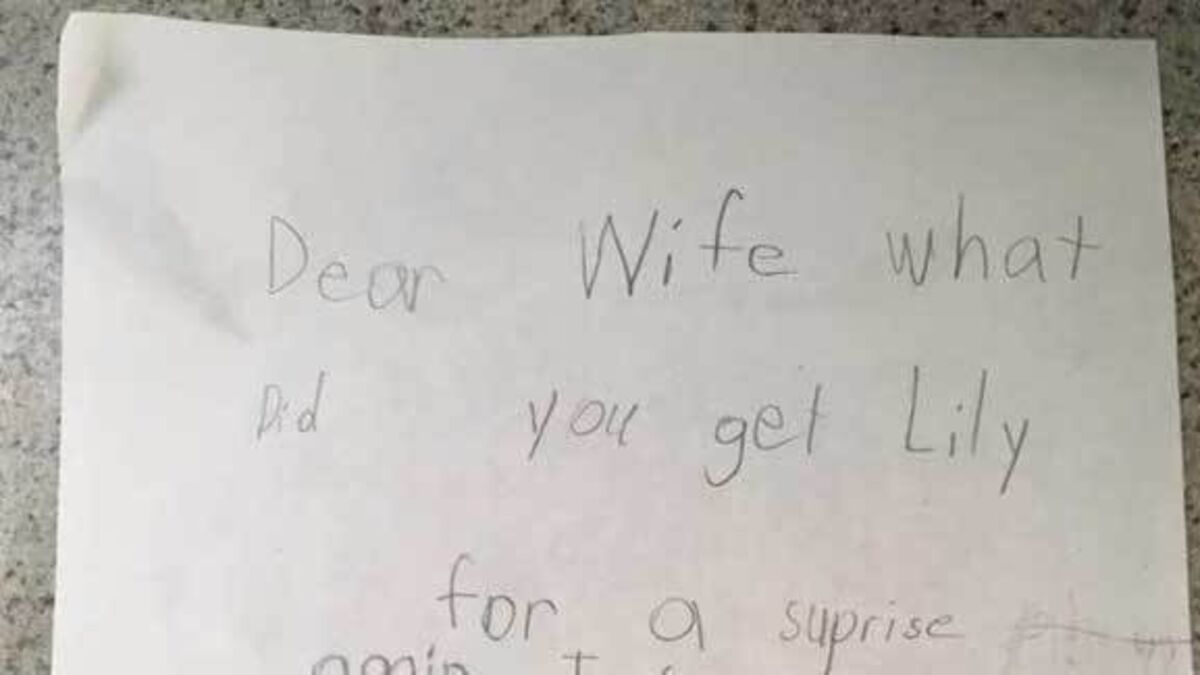 Dear Wife what
Did you get Lily
for a suprise
again I